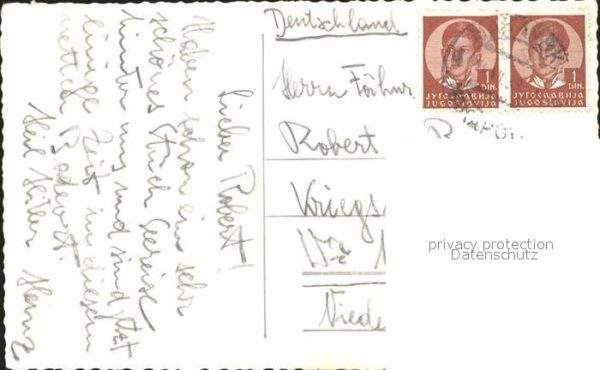 Lieber Robert!
Haben schon ein sehr
schönes Stück Gereise
hinter uns und sind jetzt
einige Zeit in diesem
netten Badeort.
Heil Hitler Heinz
Deutschland
Herrn Föhnr
Robert
Kriegs
Wr. N
Niede
1 DIN.
ЈУГОСЛАВИЈА
JUGOSLAVIJA
1 DIN.
ЈУГОСЛАВИЈА
JUGOSLAVIJA
privacy protection
Datenschutz